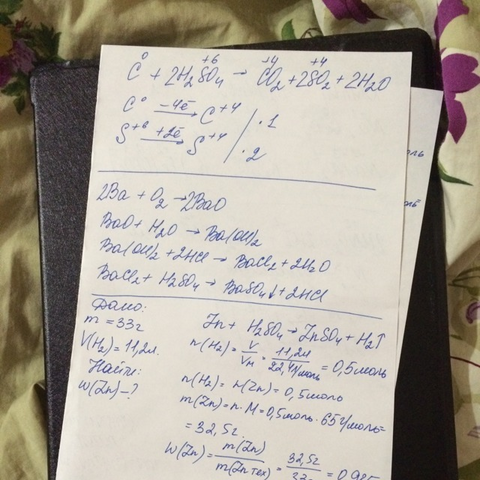 0 +6 +4 +4
C + 2H₂SO₄ → CO₂ + 2SO₂ + 2H₂O
C⁰ −4ē → C⁺⁴ | ·1
S⁺⁶ +2ē → S⁺⁴ | ·2
2Ba + O₂ → 2BaO
BaO + H₂O → Ba(OH)₂
Ba(OH)₂ + 2HCl → BaCl₂ + 2H₂O
BaCl₂ + H₂SO₄ → BaSO₄↓ + 2HCl
Дано:
m = 33г
V(H₂) = 11,2л.
Найти:
W(Zn) - ?
Zn + H₂SO₄ → ZnSO₄ + H₂↑
n(H₂) = V/Vм = 11,2л/22,4л/моль = 0,5моль
n(H₂) = n(Zn) = 0,5моль
m(Zn) = n·M = 0,5моль · 65г/моль =
= 32,5г
W(Zn) = m(Zn)/m(Zn тех) = 32,5г/33г = 0,985
оль